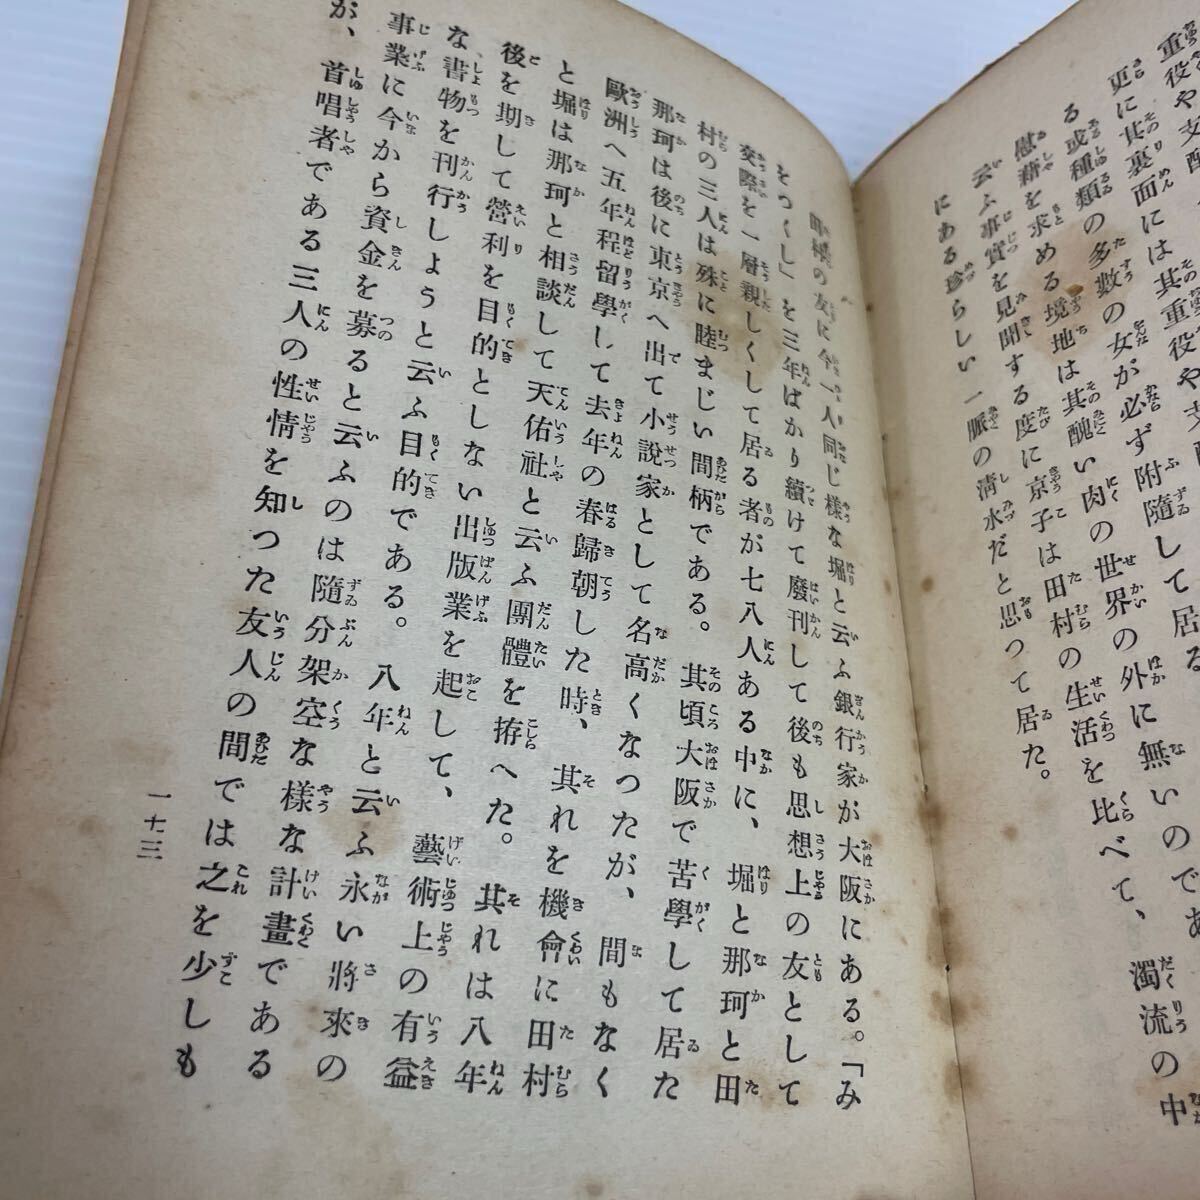 重役や支配
更に其裏面には其重役や支
る或種類の多數の女が必ず附隨して居る
慰藉を求める境地は其醜い肉の世界の外に無いのであ
云ふ事實を見聞する度に京子は田村の生活を比べて、濁流の中
にある珍らしい一脈の淸水だと思つて居た。
田村の友に今一人同じ樣な堀と云ふ銀行家が大阪にある。「み
をつくし」を三年ばかり續けて廢刊して後も思想上の友として
交際を一層親しくして居る者が七八人ある中に、堀と那珂と田
村の三人は殊に睦まじい間柄である。其頃大阪で苦學して居た
那珂は後に東京へ出て小說家として名高くなつたが、間もなく
歐洲へ五年程留學して去年の春歸朝した時、其れを機會に田村
と堀は那珂と相談して天佑社と云ふ團體を拵へた。其れは八年
後を期して營利を目的としない出版業を起して、藝術上の有益
な書物を刊行しようと云ふ目的である。八年と云ふ永い將來の
事業に今から資金を募ると云ふのは隨分架空な樣な計畫である
が、首唱者である三人の性情を知つた友人の間では之を少しも
一十三